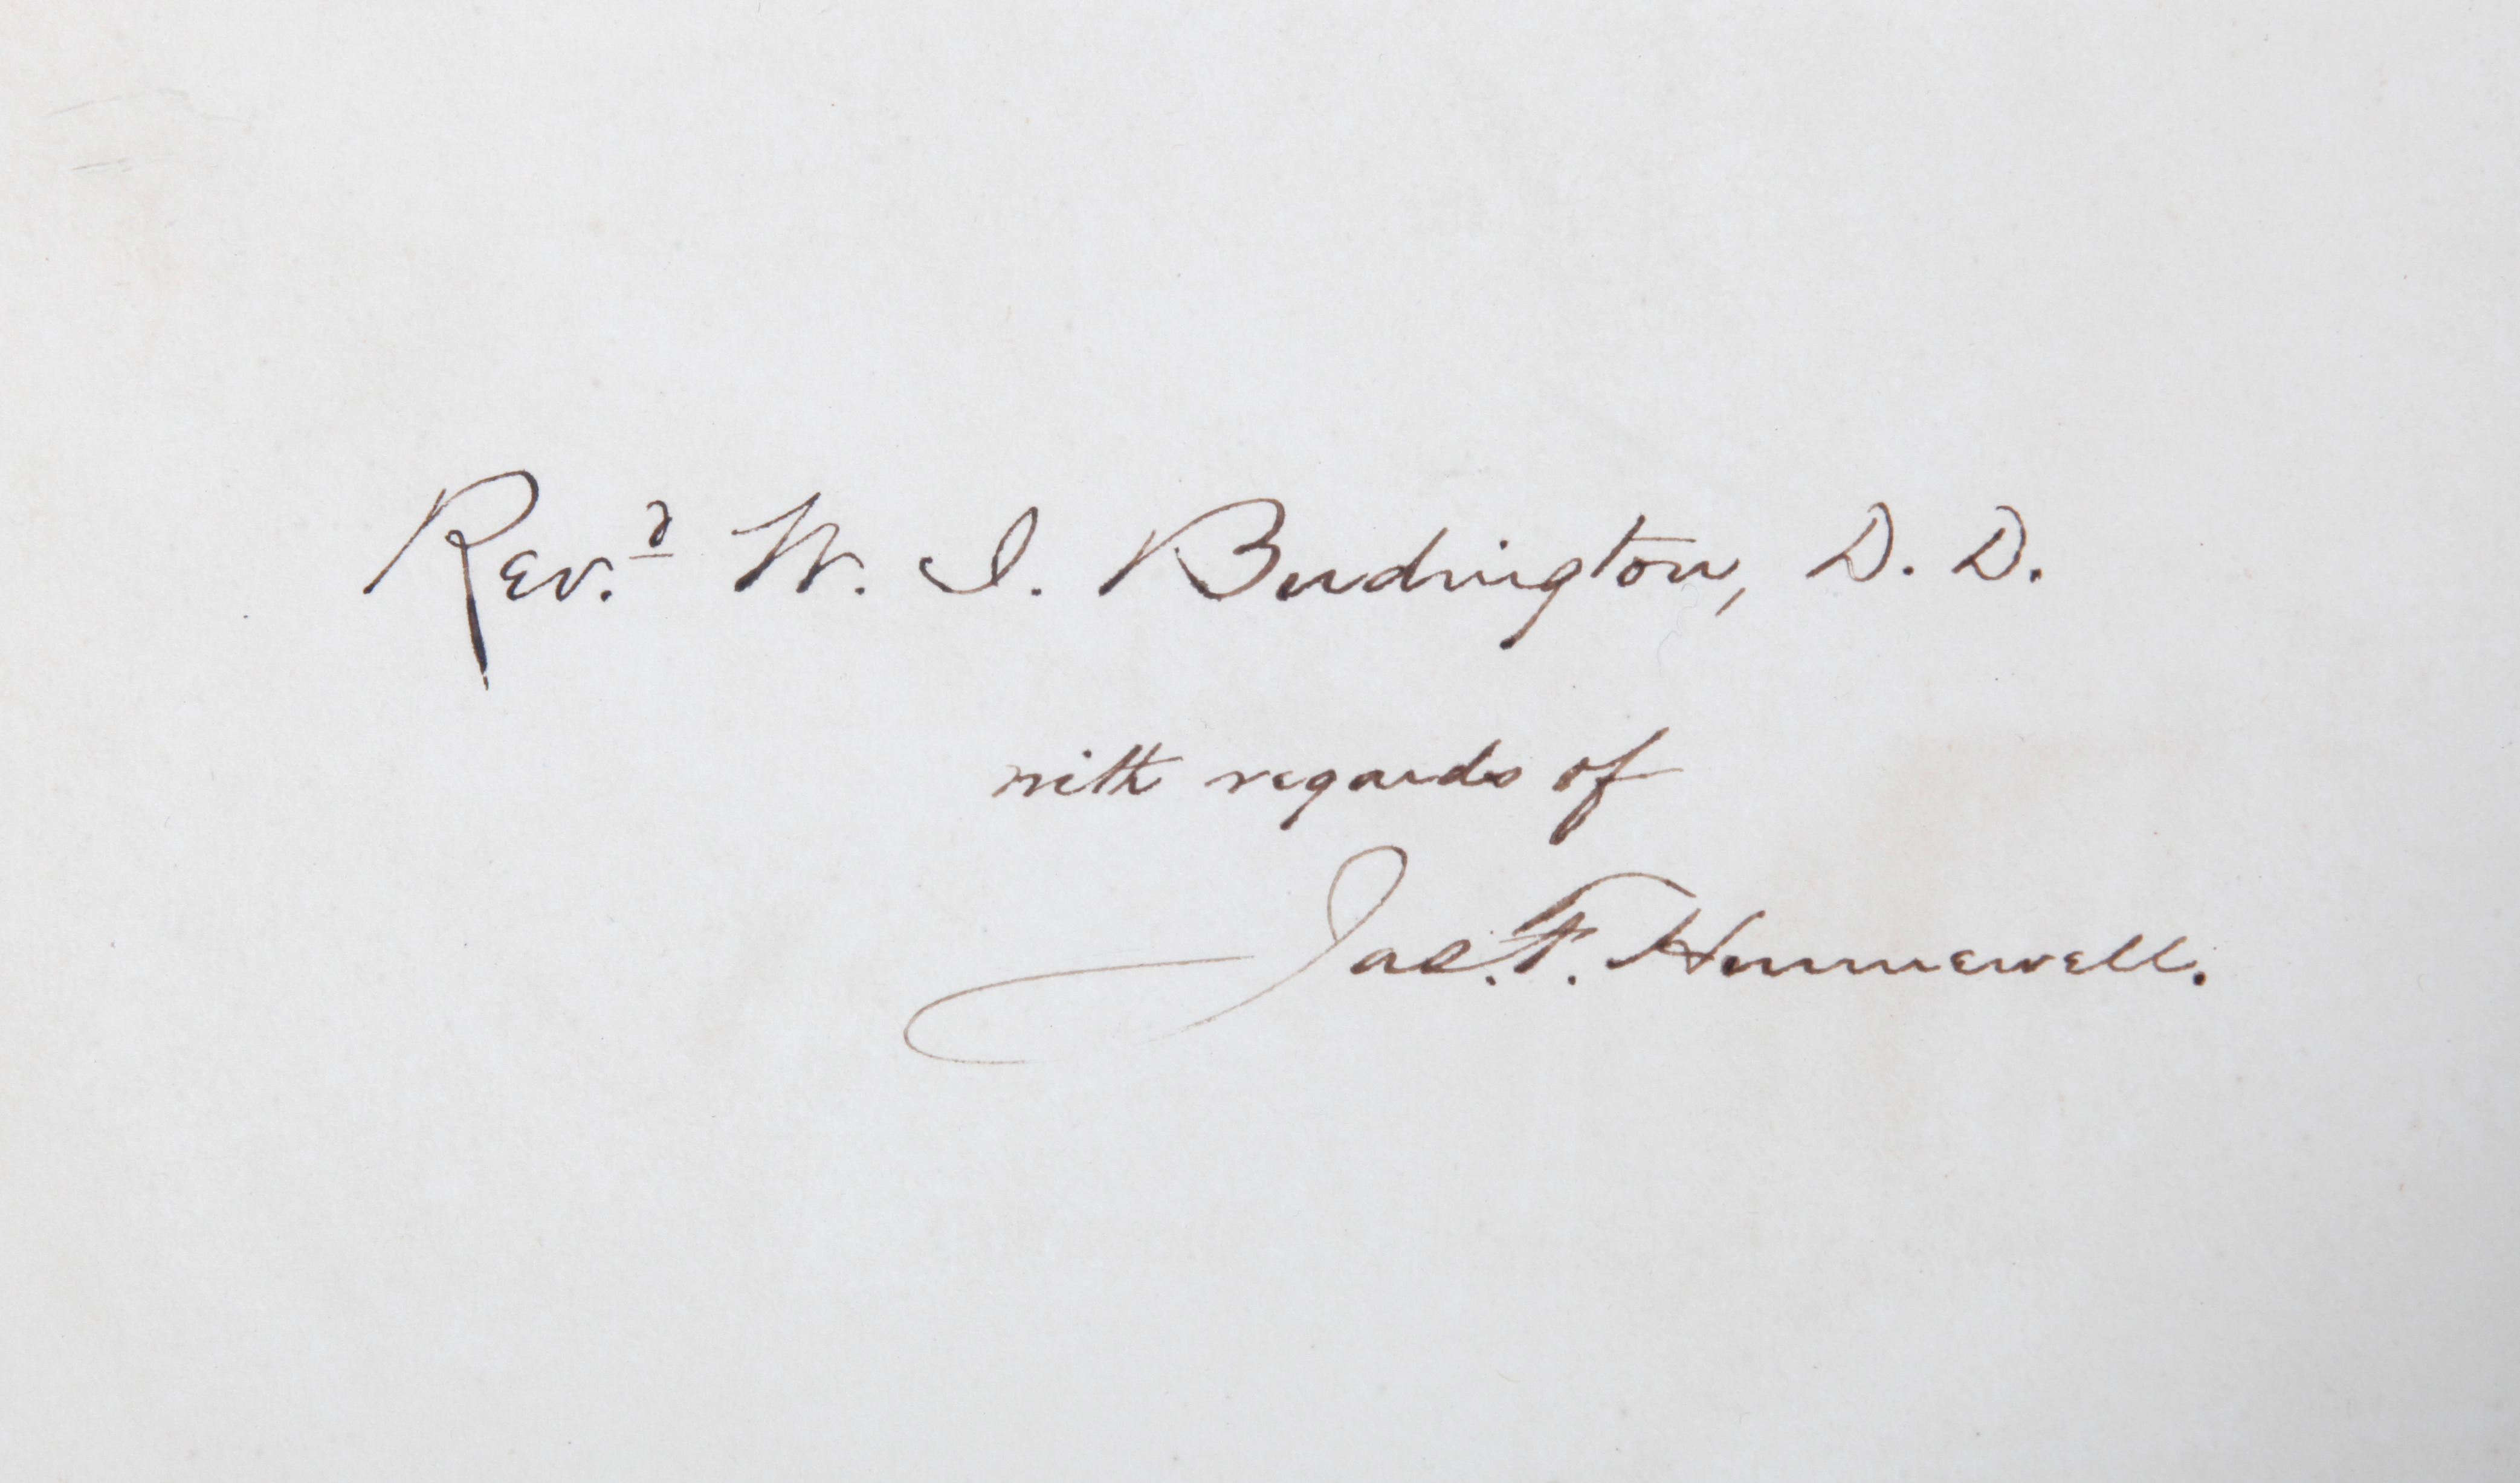 Rev.d W. I. Budington, D. D.
with regards of
Jas. F. Hunnewell.